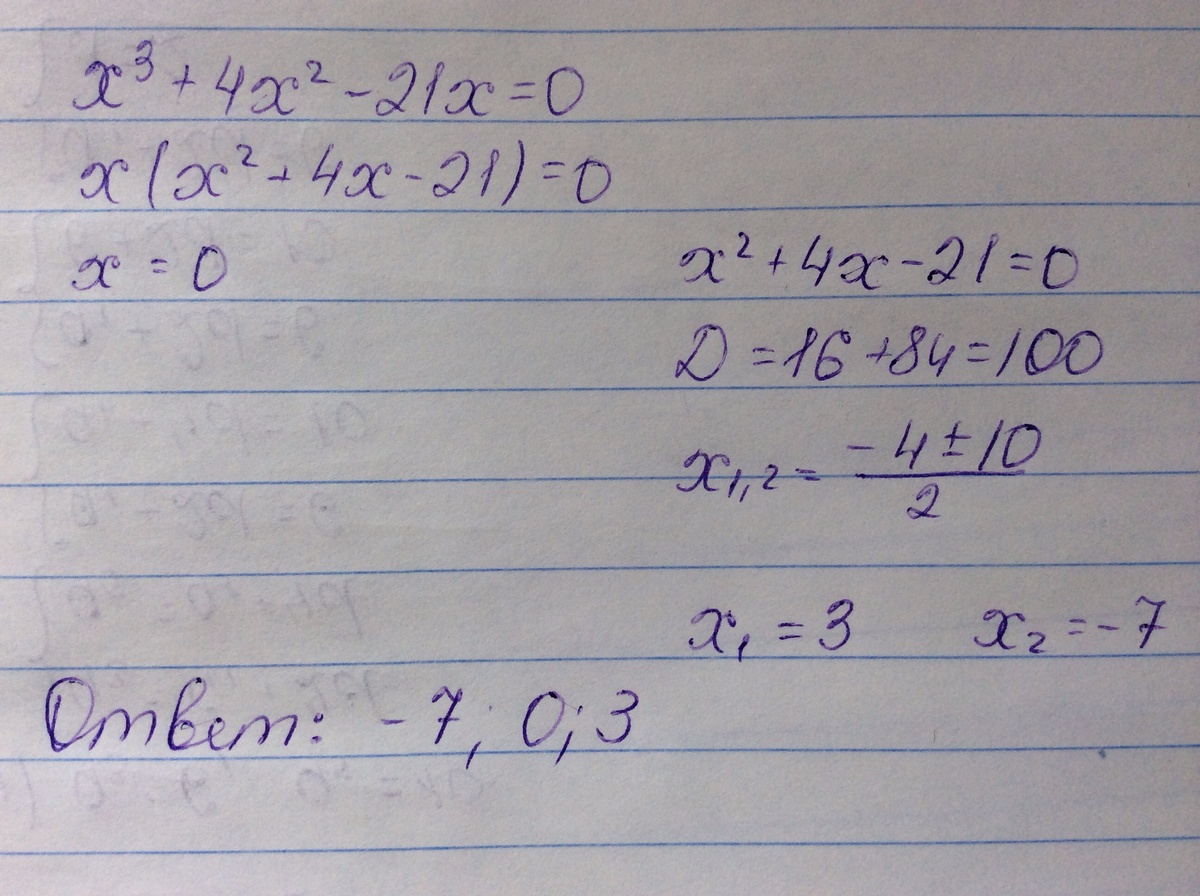 x³ + 4x² - 21x = 0
x(x² + 4x - 21) = 0
x = 0
x² + 4x - 21 = 0
D = 16 + 84 = 100
x₁,₂ = (-4 ± 10)/2
x₁ = 3 x₂ = -7
Ответ: -7; 0; 3